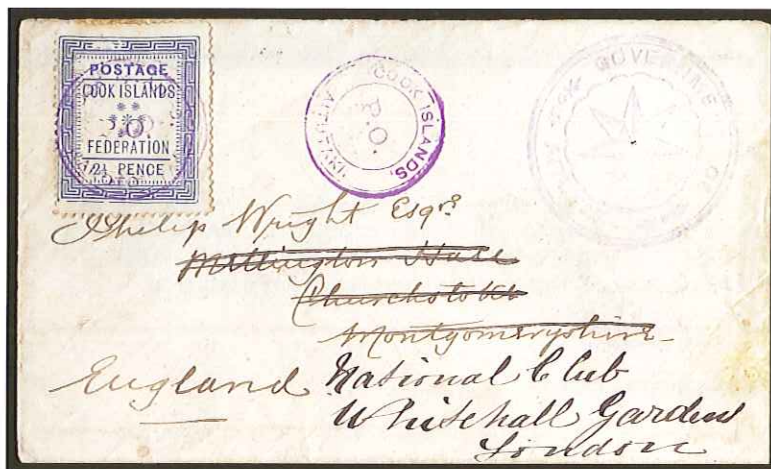 POSTAGE
COOK ISLANDS
FEDERATION
2½ PENCE
COOK ISLANDS.
AITUTAKI
P.O.
GOVERNME
Philip Wright Esqre
Mellington Hall
Churchstoke
Montgomeryshire
England
National Club
Whitehall Gardens
London